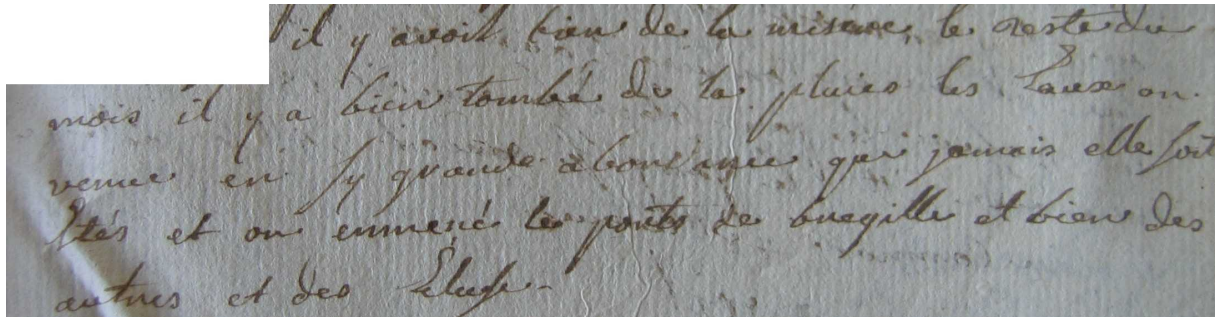 il y avoit bien de la misere, le reste du
mois il y a bien tombé de la pluies les Eaux on
venue en sy grande abondance que jamais elle soit
Etés et on enmené les ponts de bregille et bien des
autres et des Ecluse